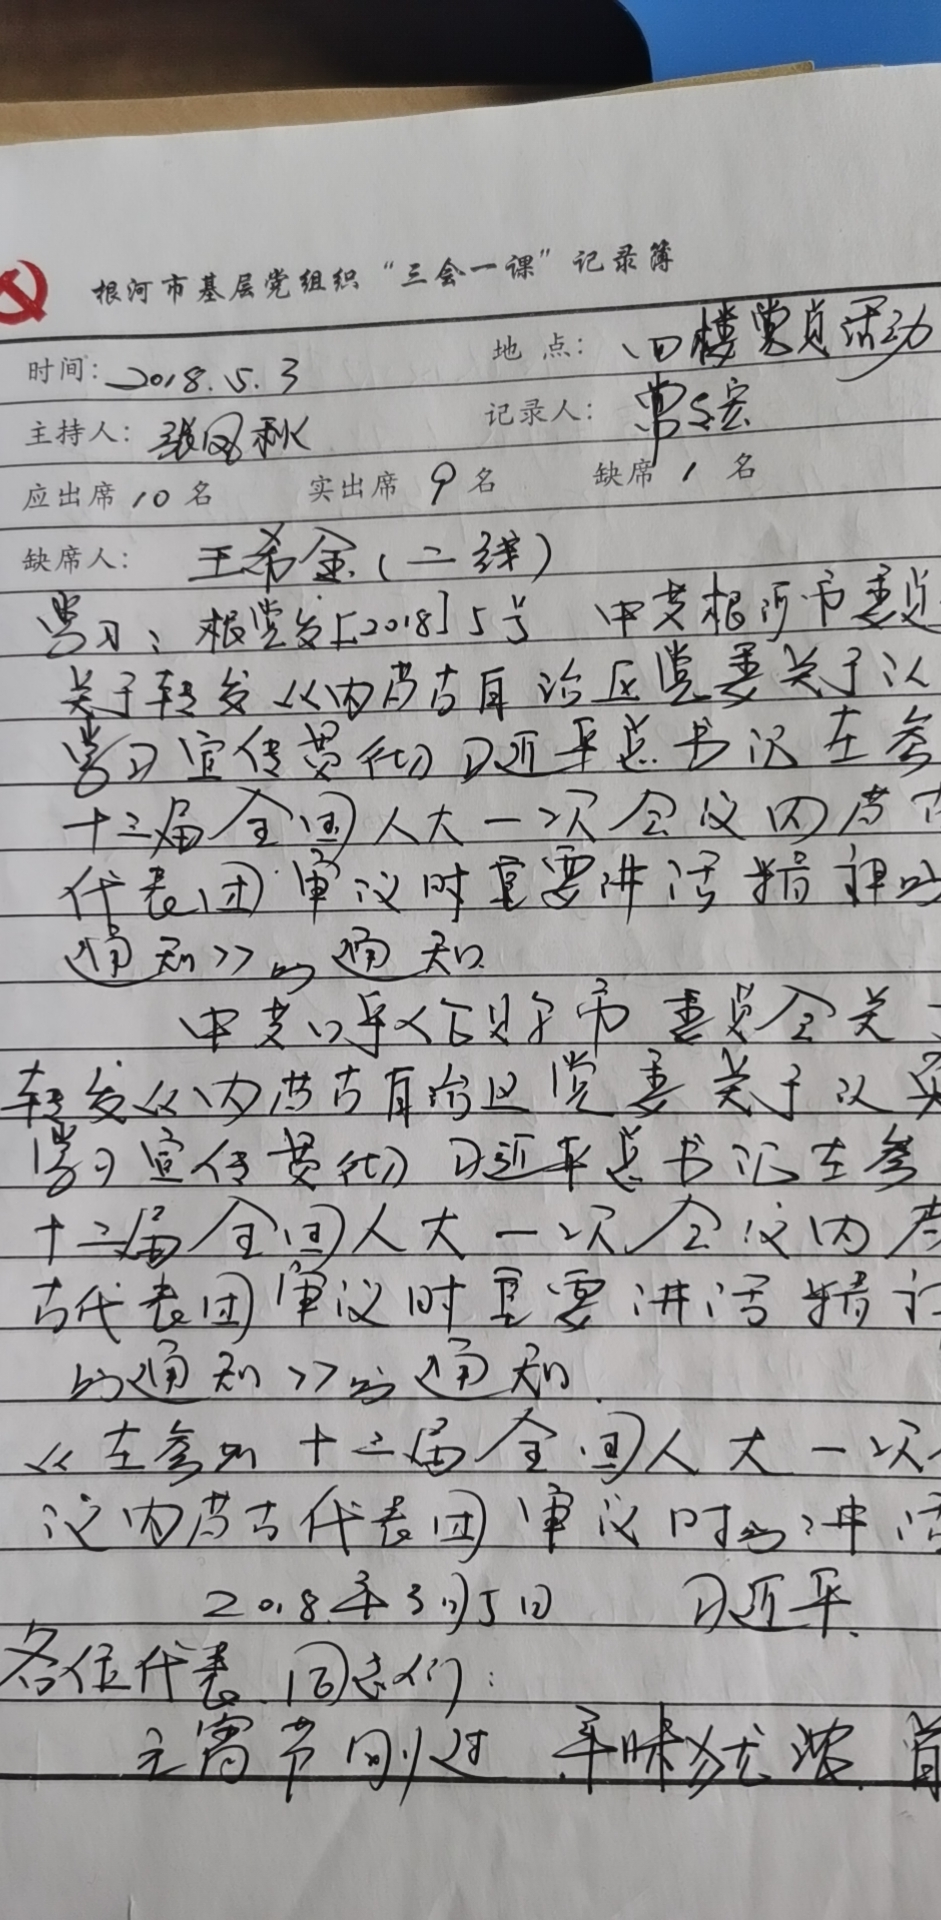 根河市基层党组织“三会一课”记录簿
时间：2018.5.3 地点：四楼党员活动
主持人：张凤秋 记录人：
应出席10名 实出席9名 缺席1名
缺席人：王希金（二线）
学习：根党发［2018］5号 中共根河市委员
关于转发《内蒙古自治区党委关于认
学习宣传贯彻习近平总书记在参
十三届全国人大一次会议内蒙古
代表团审议时重要讲话精神的
通知》的通知
中共呼伦贝尔市委员会关于
转发《内蒙古自治区党委关于认真
学习宣传贯彻习近平总书记在参
十三届全国人大一次会议内蒙
古代表团审议时重要讲话精神
的通知》的通知.
《在参加十三届全国人大一次会
议内蒙古代表团审议时的讲话
2018年3月5日 习近平.
各位代表.同志们：
元宵节刚过 年味犹浓.首